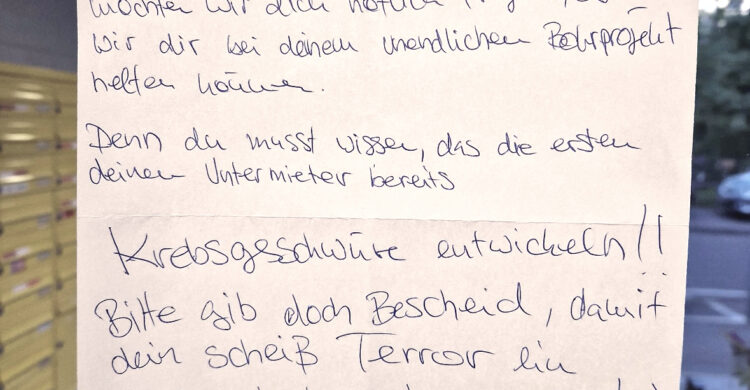 möchten wir dich höflich
wir dir bei deinem unendlichen Bohrprojekt
helfen können.
Denn du musst wissen, das die ersten
deiner Untermieter bereits
Krebsgeschwüre entwickeln!!
Bitte gib doch Bescheid, damit
dein scheiß Terror ein